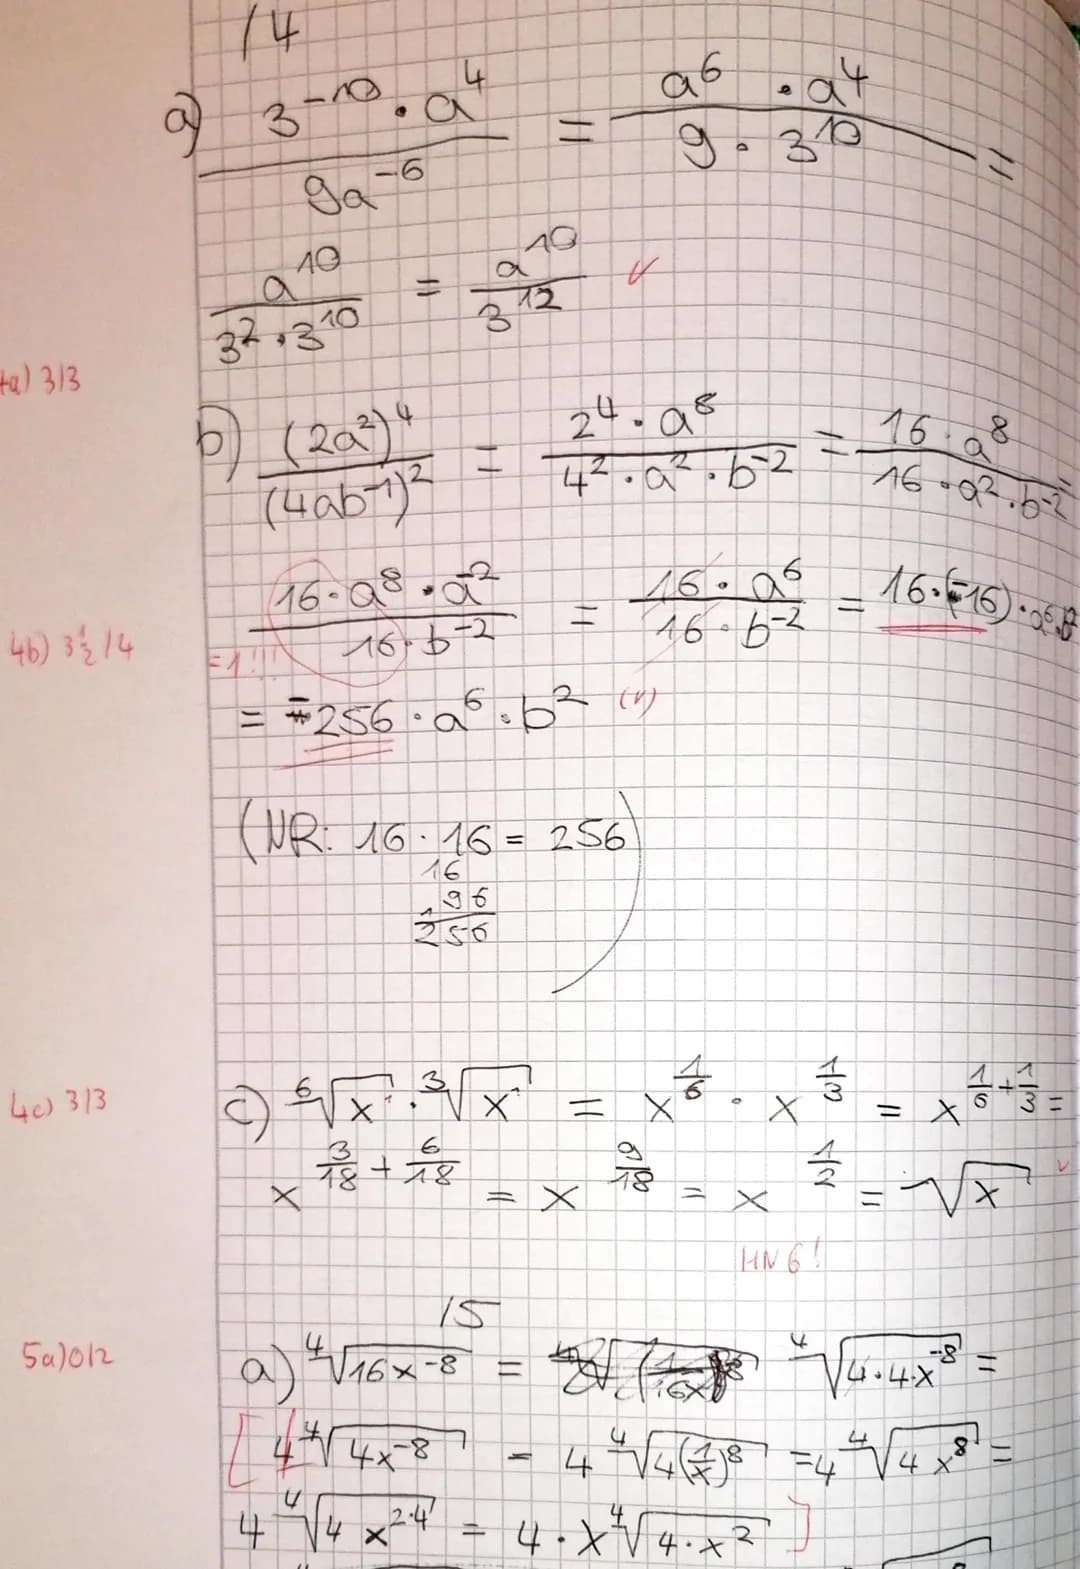 /4
a) 3^-10 · a^4 / 9a^-6 = a^6 · a^4 / 9 · 3^10 =
a^10 / 3^2 · 3^10 = a^10 / 3^12 ✓
4a) 3/3
b) (2a^2)^4 / (4ab^-1)^2 = 2^4 · a^8 / 4^2 · a^2 · b^-2 = 16 · a^8 / 16 · a^2 · b^-2 =
16 · a^8 · a^-2 / 16 · b^-2 = 16 · a^6 / 16 · b^-2 = 16 · (-16) · a^6 · b^2
4b) 3 1/2 /4
=1!!!
= -256 · a^6 · b^2 (✓)
(NR: 16 · 16 = 256)
16
96
256
4c) 3/3
c) ⁶√x · ³√x = x^1/6 · x^1/3 = x^1/6+1/3 =
x^3/18+6/18 = x^9/18 = x^1/2 = √x ✓
HN 6!
/5
5a) 0/2
a) ⁴√16x^-8 = ⁴√4·4·x^-8 =
[4 ⁴√4x^-8 = 4 ⁴√4(1/x)^8 = 4 ⁴√4x^8 =
4 ⁴√4x^2·4 = 4·x ⁴√4·x^2 ]